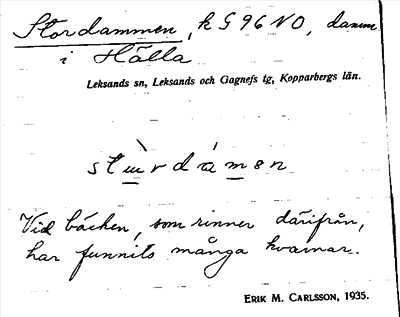 Stordammen, k G 96 NO, damm
i Hälla
Leksands sn, Leksands och Gagnefs tg, Kopparbergs län.
stùrdámən
Vid bäcken, som rinner därifrån,
har funnits många kvarnar.
ERIK M. CARLSSON, 1935.